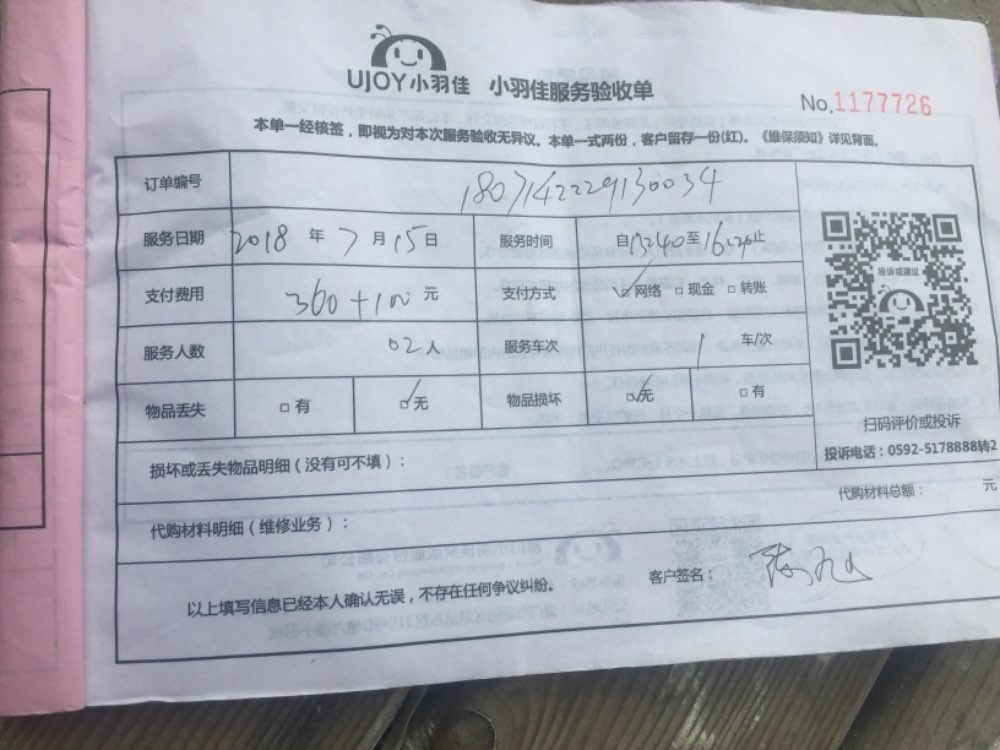 UJOY小羽佳 小羽佳服务验收单
No.1177726
本单一经核签，即视为对本次服务验收无异议。本单一式两份，客户留存一份(红)。《维保须知》详见背面。
订单编号 1807142229130034
服务日期 2018 年 7 月 15 日 服务时间 自 至 止
支付费用 360+100 元 支付方式 ☑网络 □现金 □转账
服务人数 02人 服务车次 1 车/次
物品丢失 □有 ☑无 物品损坏 ☑无 □有
投诉或建议
扫码评价或投诉
投诉电话：0592-5178888转2
损坏或丢失物品明细（没有可不填）：
代购材料总额： 元
代购材料明细（维修业务）：
以上填写信息已经本人确认无误，不存在任何争议纠纷。
客户签名：